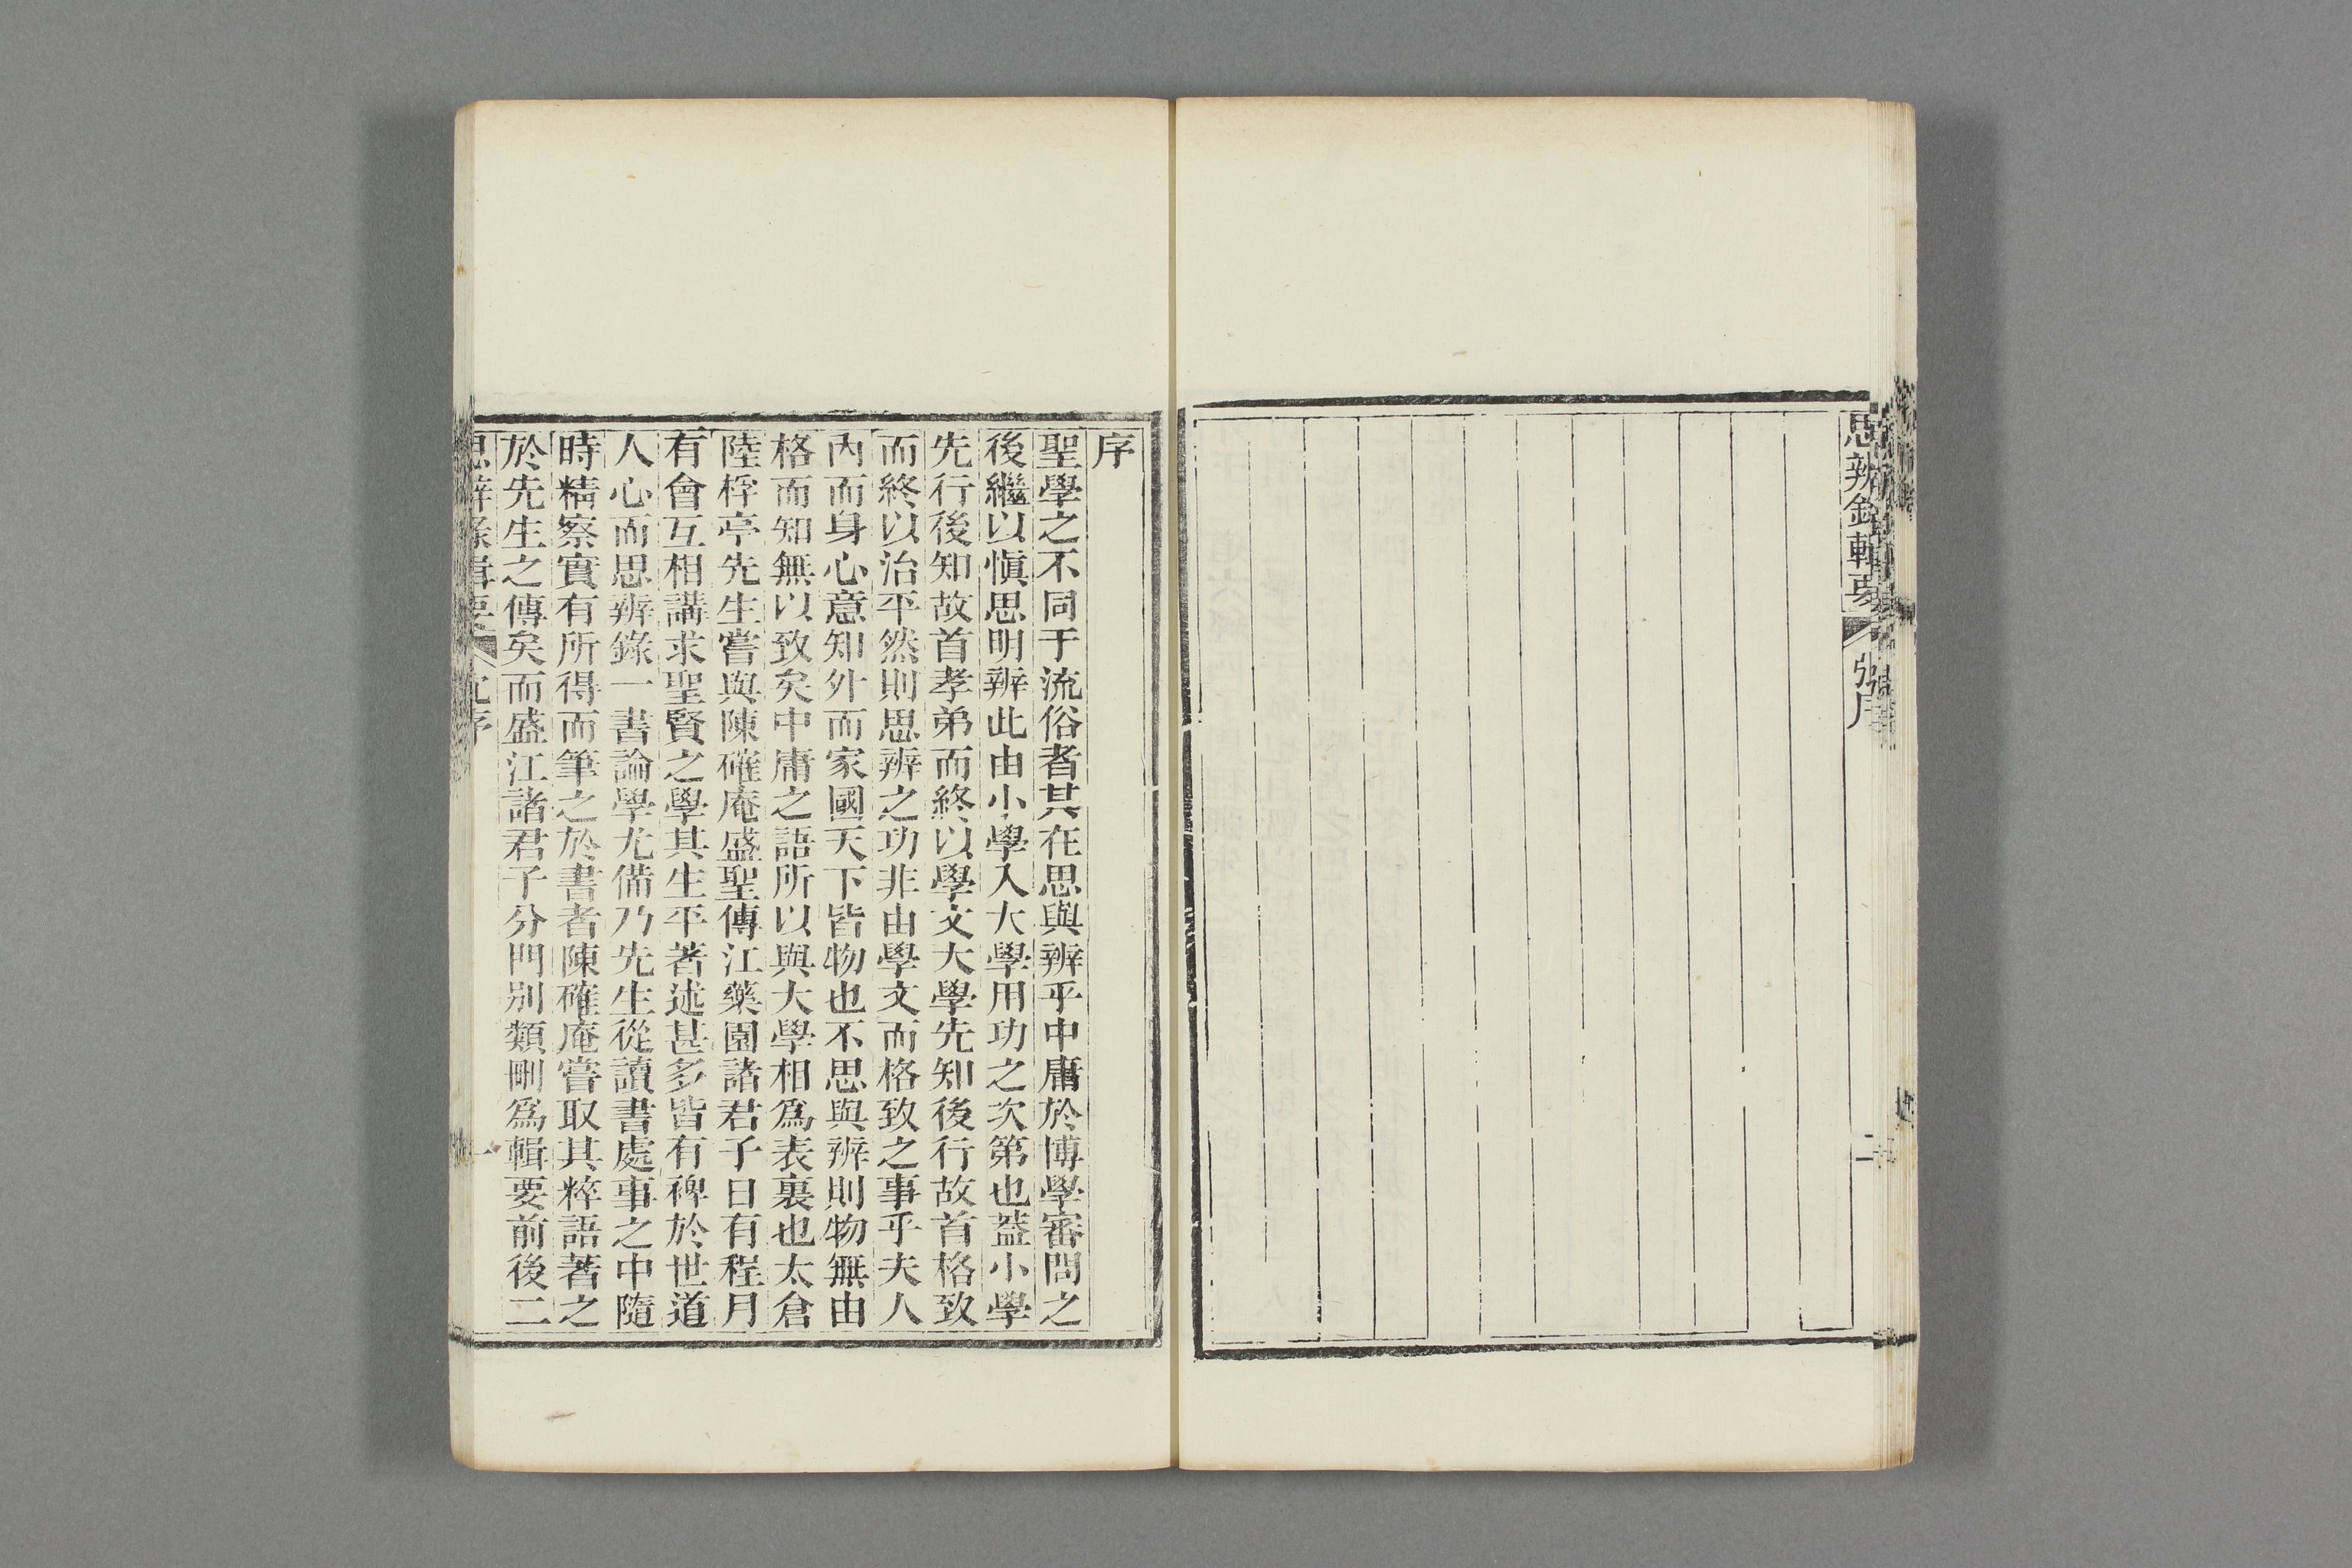 思辨錄輯要 張序
二
序
聖學之不同于流俗者其在思與辨乎中庸於博學審問之
後繼以愼思明辨此由小學入大學用功之次第也蓋小學
先行後知故首孝弟而終以學文大學先知後行故首格致
而終以治平然則思辨之功非由學文而格致之事乎夫人
內而身心意知外而家國天下皆物也不思與辨則物無由
格而知無以致矣中庸之語所以與大學相爲表裏也太倉
陸桴亭先生嘗與陳確庵盛聖傳江藥園諸君子日有程月
有會互相講求聖賢之學其生平著述甚多皆有裨於世道
人心而思辨錄一書論學尤備乃先生從讀書處事之中隨
時精察實有所得而筆之於書者陳確庵嘗取其粹語著之
於先生之傳矣而盛江諸君子分門別類刪爲輯要前後二
思辨錄輯要 序
一